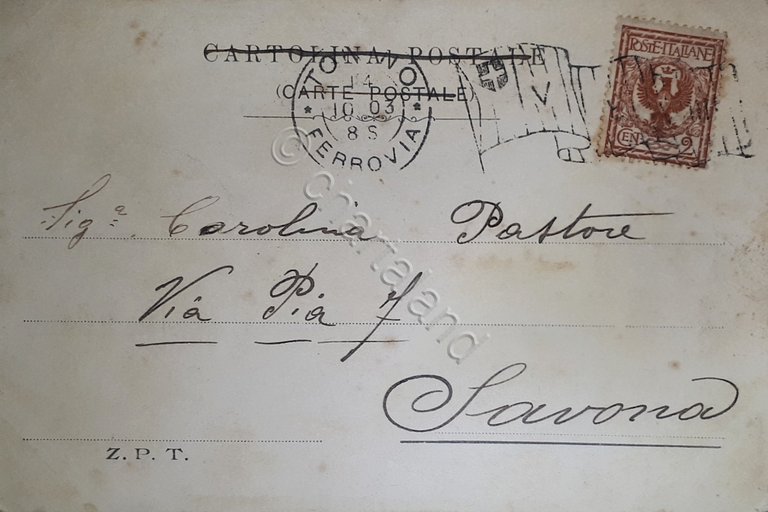 CARTOLINA POSTALE
(CARTE POSTALE)
TO NO
14
10 03
8 S
FERROVIA
V
POSTE·ITALIANE
CENT 2
Sig.ª Carolina Pastore
Via Pia 7
Savona
Z. P. T.
© chartaland